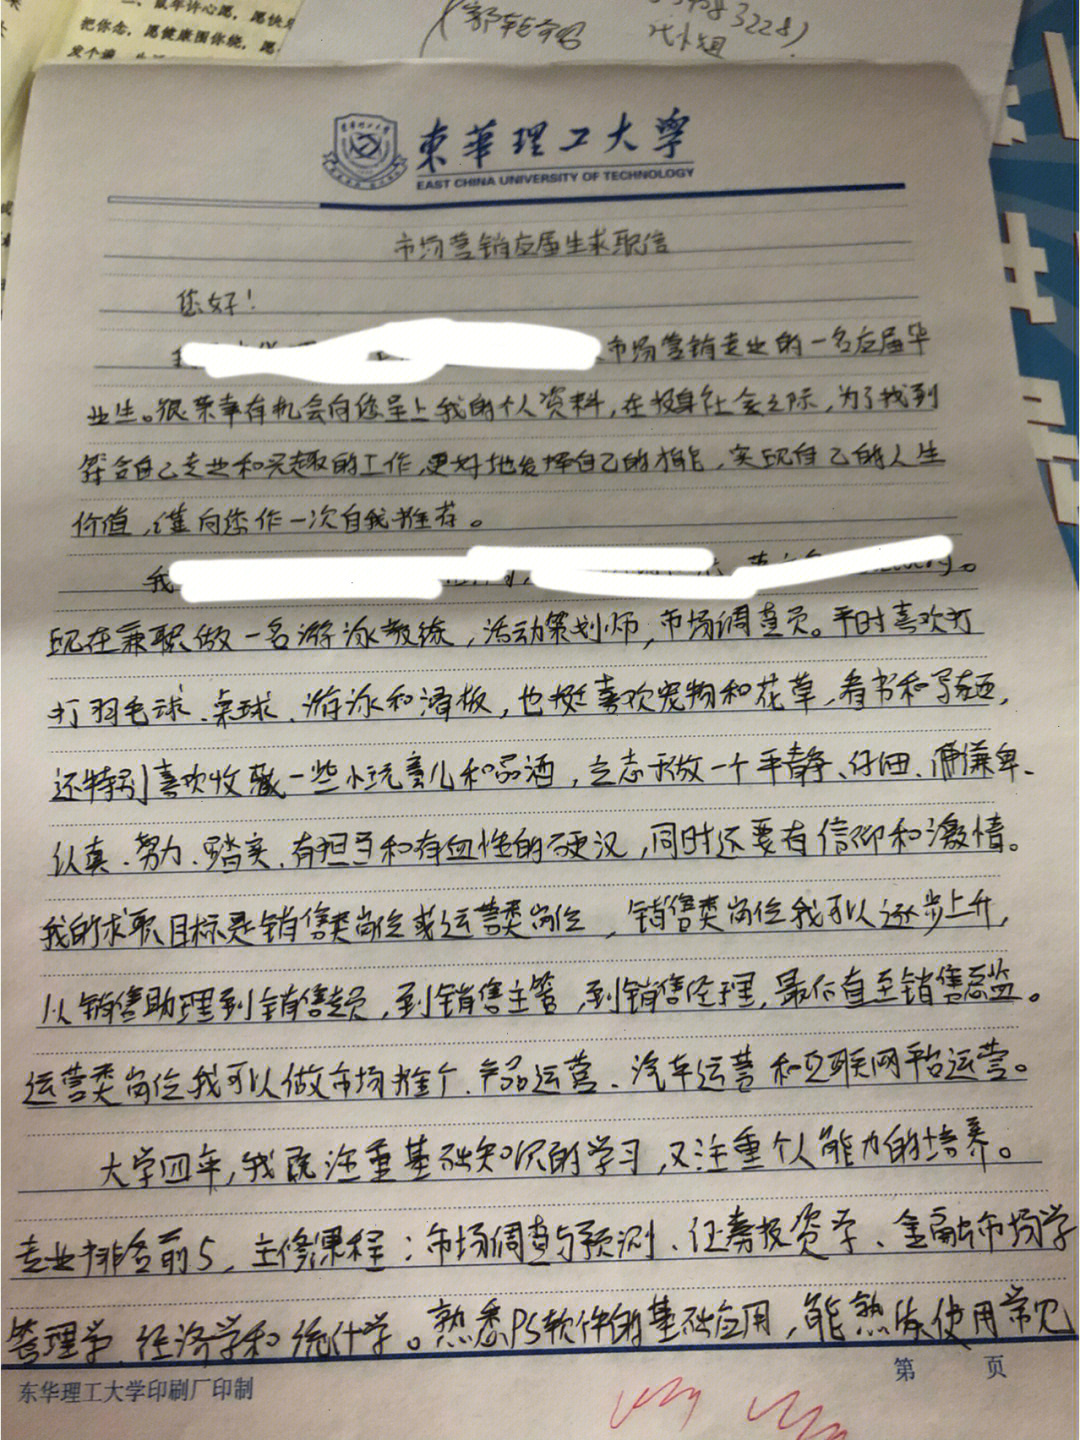 一、鼠年许心愿，愿快乐
把你恋，愿健康围你绕，愿
3228)
代小姐
東華理工大學
EAST CHINA UNIVERSITY OF TECHNOLOGY
市场营销应届生求职信
您好！
市场营销专业的一名应届毕
业生。很荣幸有机会向您呈上我的个人资料，在投身社会之际，为了找到
符合自己专业和兴趣的工作，更好地发挥自己的才能，实现自己的人生
价值，谨向您作一次自我推荐。
我
现在兼职做一名游泳教练，活动策划师，市场调查员。平时喜欢打
打羽毛球、桌球、游泳和滑板，也挺喜欢宠物和花草，看书和写东西，
还特别喜欢收藏一些小玩意儿和品酒，立志于做一个平静、仔细、谦卑、
认真、努力、踏实、有担当和有血性的硬汉，同时还要有信仰和激情。
我的求职目标是销售类岗位或运营类岗位，销售类岗位我可以逐步上升，
从销售助理到销售专员，到销售主管，到销售经理，最后直至销售总监。
运营类岗位我可以做市场推介、产品运营、汽车运营和互联网平台运营。
大学四年，我既注重基础知识的学习，又注重个人能力的培养。
专业排名前5，主修课程：市场调查与预测、证券投资学、金融市场学
管理学、经济学和统计学。熟悉PS软件的基础应用，能熟练使用常见
东华理工大学印刷厂印制
第 页